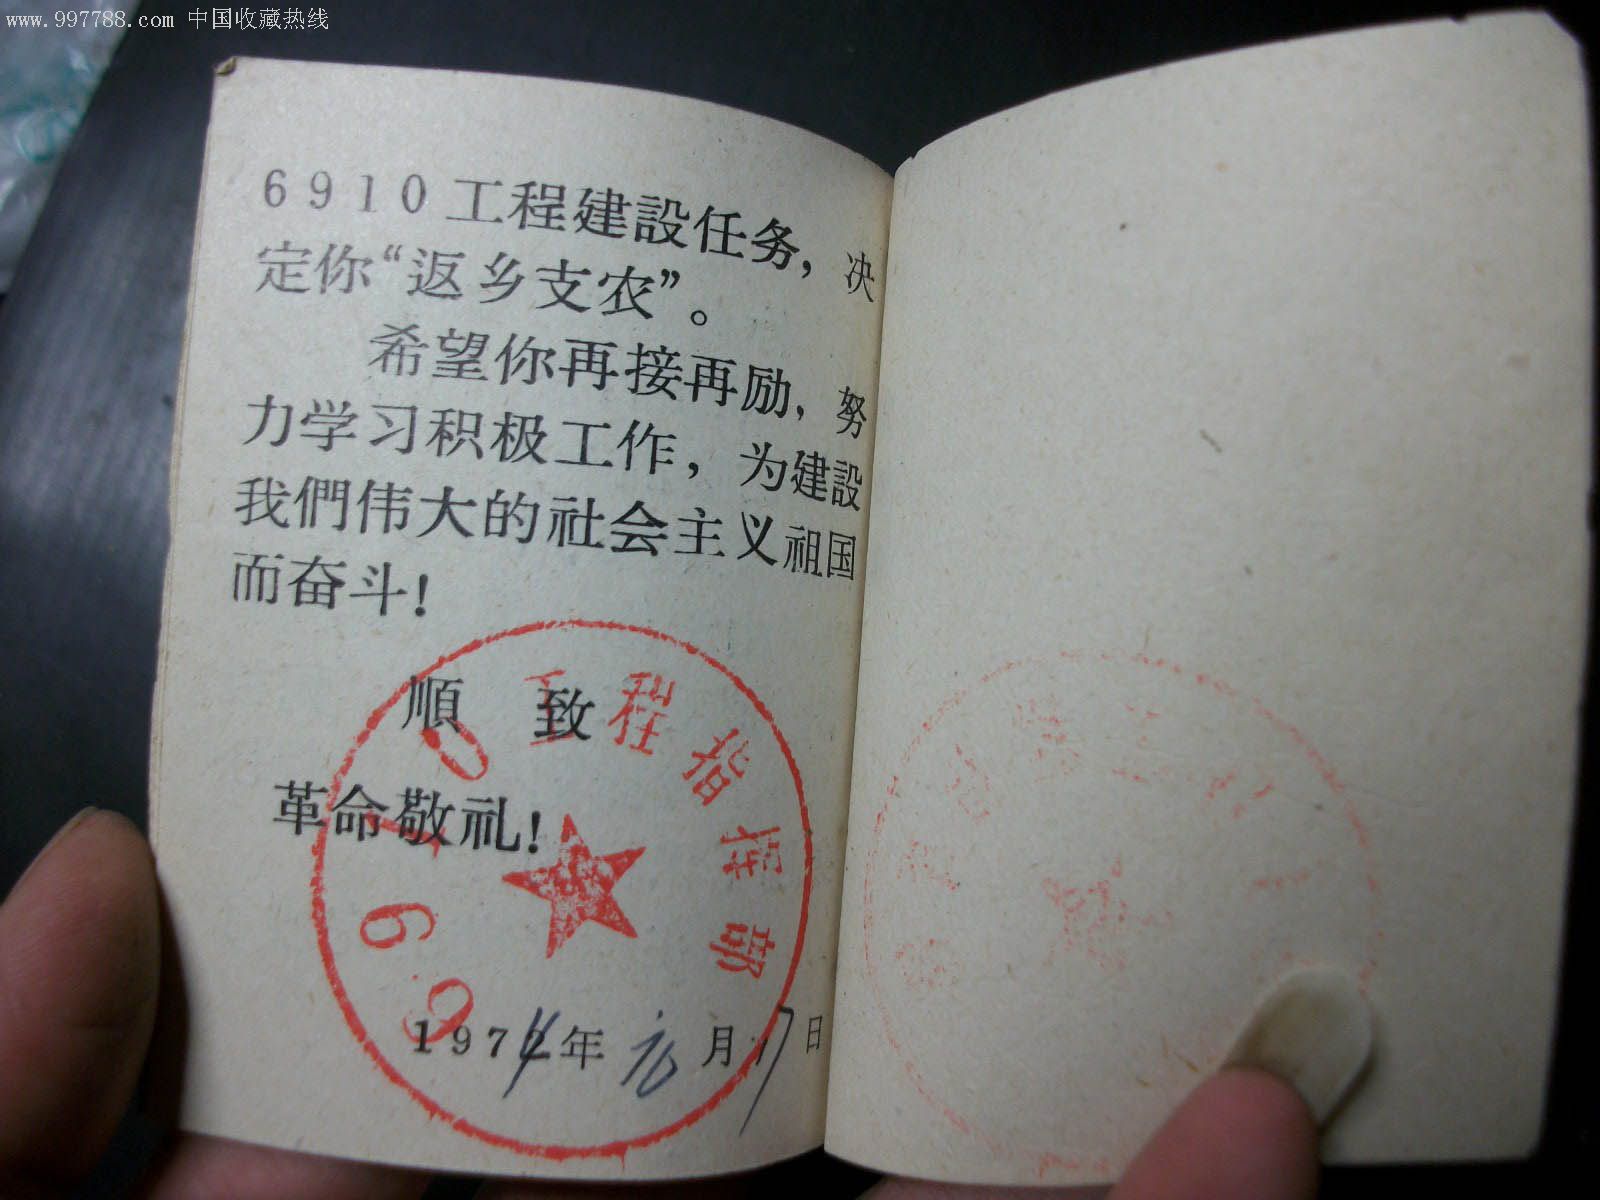 www.997788.com 中国收藏热线
6910工程建設任务，决
定你“返乡支农”。
希望你再接再励，努
力学习积极工作，为建設
我們伟大的社会主义祖国
而奋斗！
順 致
革命敬礼！
6910工程指挥部
1974年10月17日